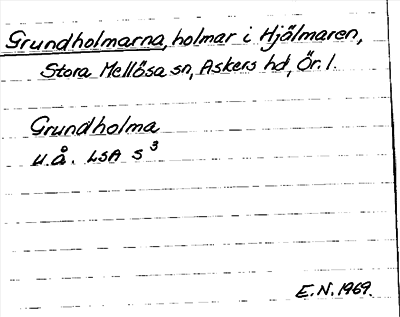 Grundholmarna, holmar i Hjälmaren,
Stora Mellösa sn, Askers hd, Ör. l.
Grundholma
U.å. LSA S³
E.N. 1969.